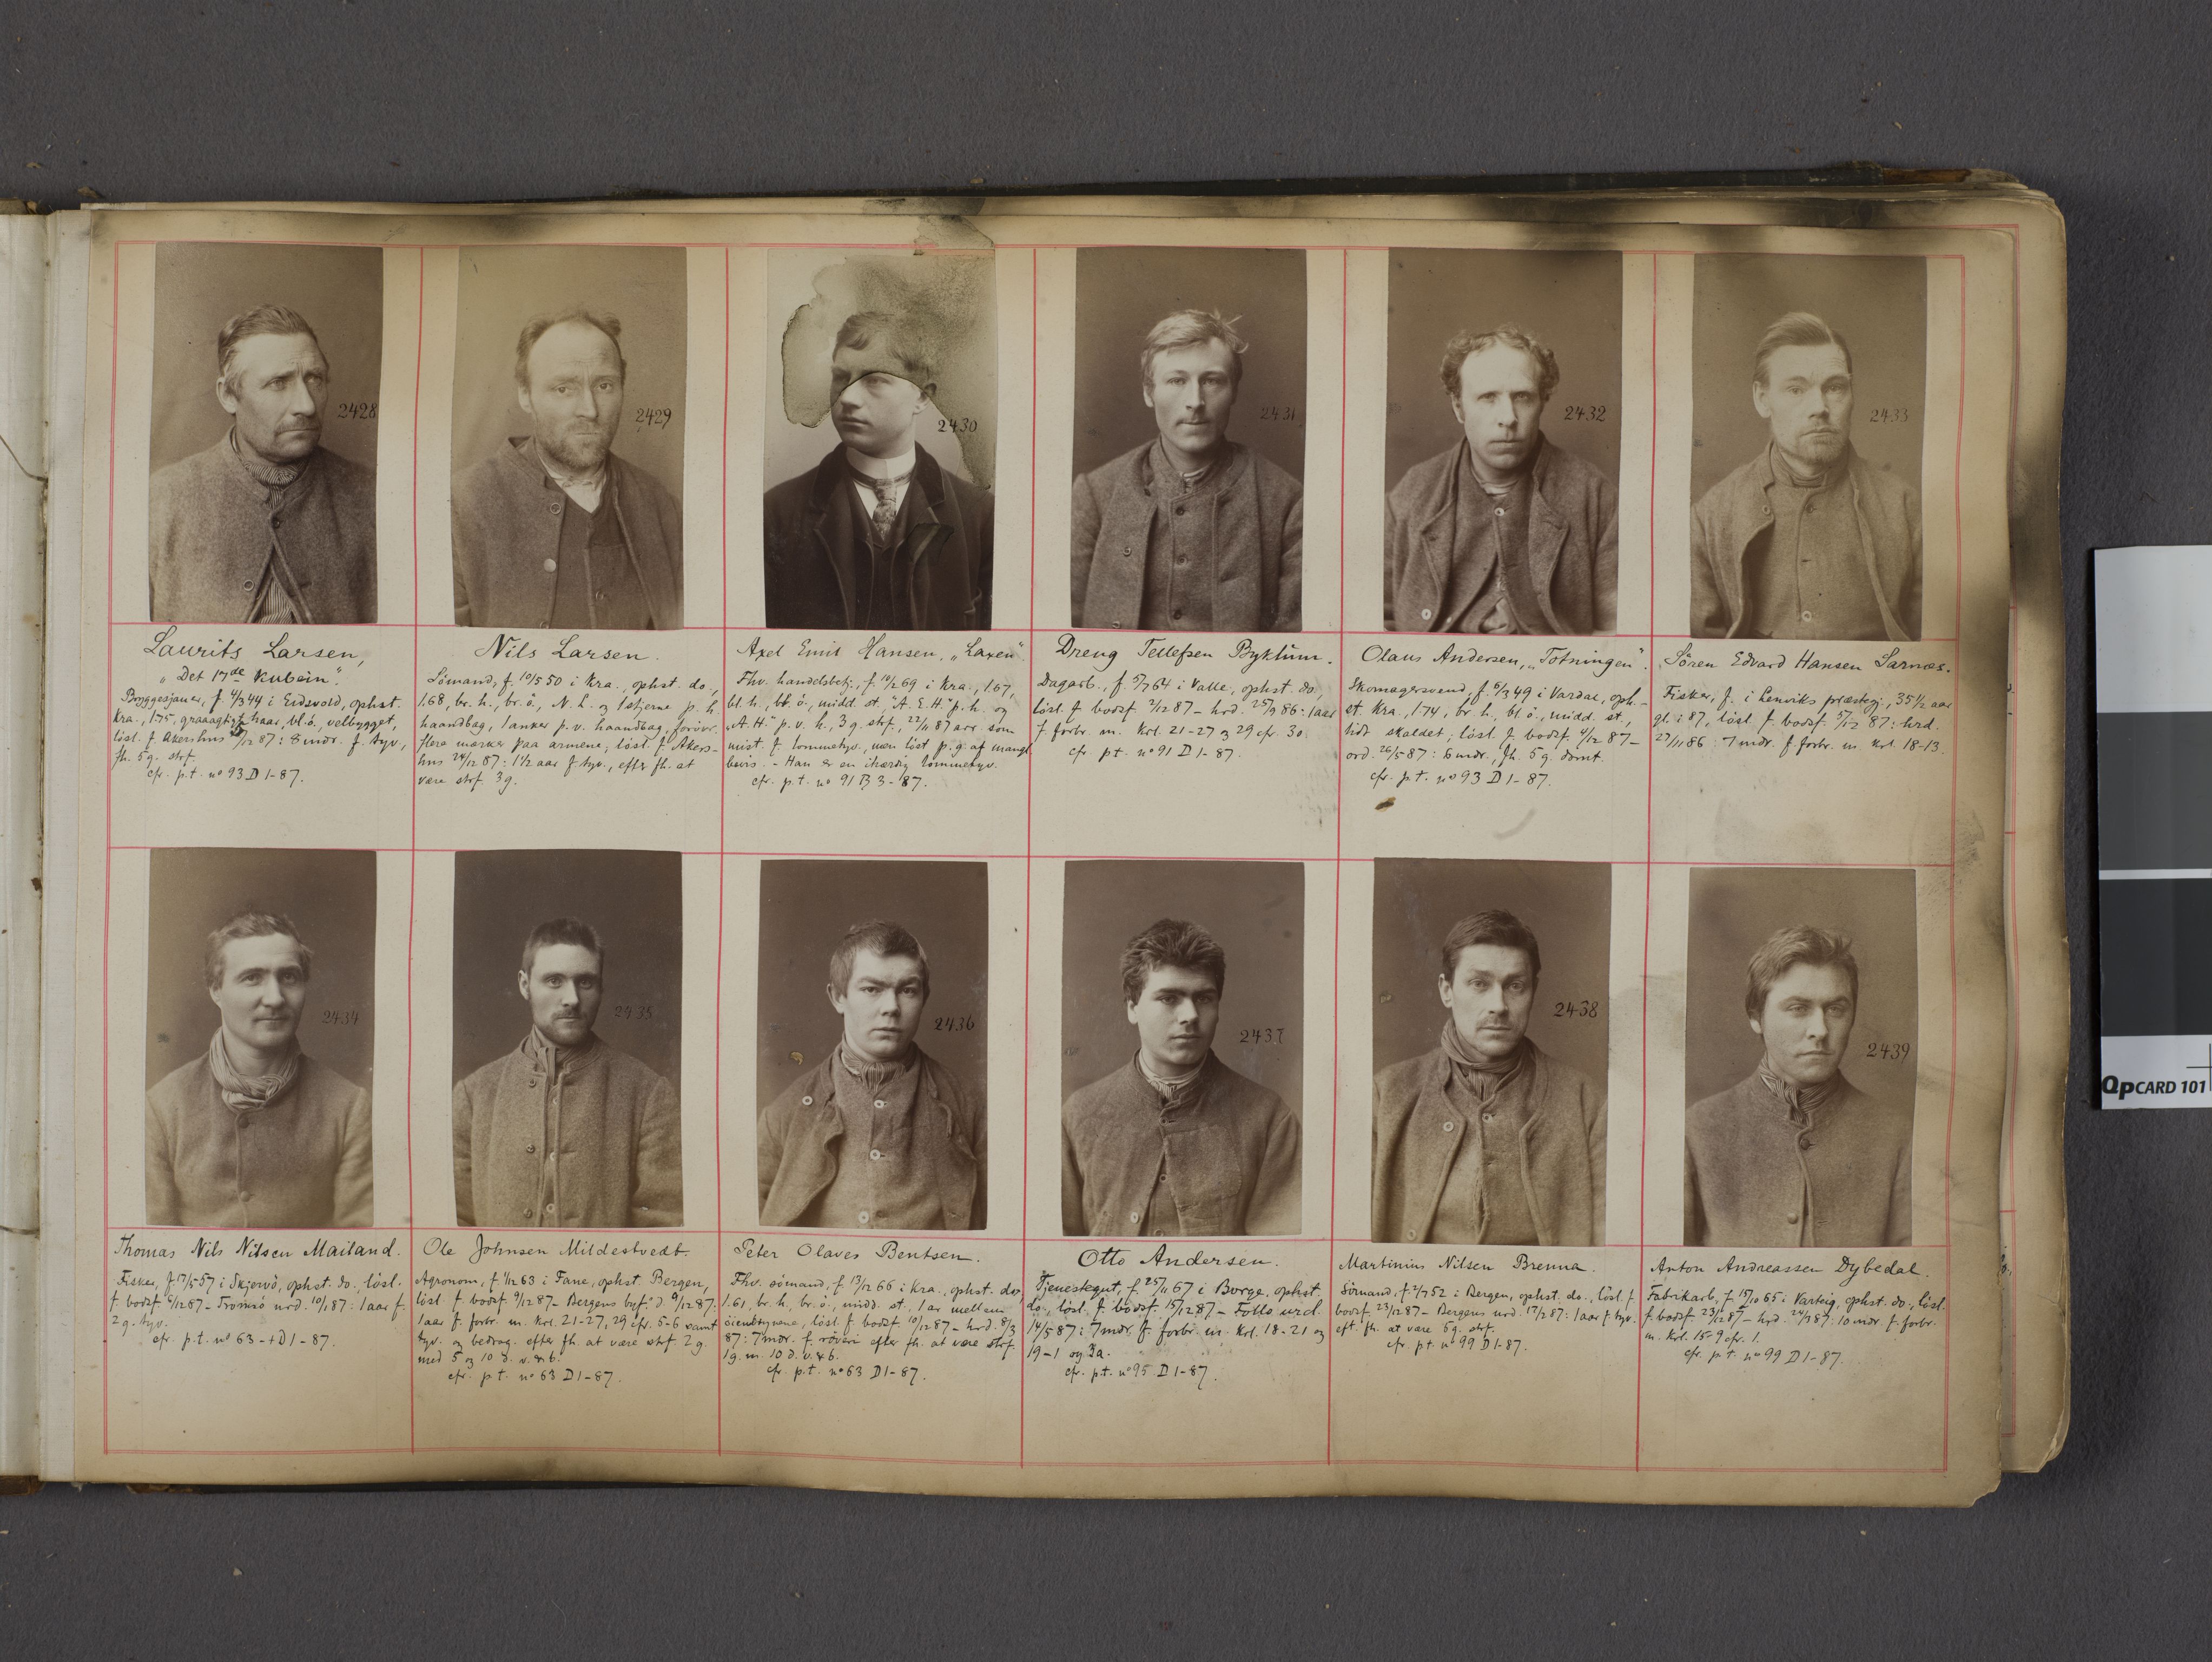 2428
2429
2430
2431
2432
2433
Laurits Larsen,
"Det 17de Kubein".
Bryggesjauer, f. 4/3 44 i Eidsvold, ophst.
Kra., 1.75, graaagtigt haar, bl. ö., velbygget,
lösl. f. Akershus /12 87: 8 mdr. f. tyv.,
fh. 5 g. strf.
cfr. p.t. no 93 D 1-87.
Nils Larsen.
Sömand, f. 10/5 50 i Kra., ophst. do.,
1.68, br. h., br. ö., N. L. og 1 stjerne p. h.
haandbag, 1 anker p. v. haandbag, foröv.
flere mærker paa armene; lösl. f. Akers-
hus 24/12 87: 1 1/2 aar f. tyv., efter fh. at
være strf. 3 g.
Axel Emil Hansen, "Laxen".
Fhv. handelsbetj., f. 10/2 69 i Kra., 1.67,
bl. h., bl. ö., midd. st., "A. E. H." p. h. og
"A. H." p. v. h., 3 g. strf., 22/11 87 arr. som
mist. f. lommetyv., men löst p. g. af mangl.
bevis. - Han er en ihærdig lommetyv.
cfr. p. t. no 91 B 3-87.
Dreng Tellefsen Byklum.
Dagarb., f. 5/7 64 i Valle, ophst. do.,
lösl. f. bodsf. 2/12 87 - hrd. 25/9 86: 1 aar
f. forbr. m. Krl. 21-27 og 29 cfr. 30
cfr. p.t. no 91 D 1-87.
Olaus Andersen, "Totningen".
Skomagersvend, f. 6/3 49 i Vardal, oph-
st. Kra., 1.74, br. h., bl. ö., midd. st.,
lidt skaldet; lösl. f. bodsf. 4/12 87 -
ord. 26/5 87: 6 mdr., fh. 5 g. dömt.
cfr. p.t. no 93 D 1-87.
Sören Edvard Hansen Sarnæs.
Fisker, f. i Lenviks præstegj., 35 1/2 aar
gl. i 87, lösl. f. bodsf. 5/12 87: hrd.
27/11 86: 7 mdr. f. forbr. m. Krl. 18-13.
2434
2435
2436
2437
2438
2439
Thomas Nils Nilsen Mailand.
Fisker, f. 17/5 57 i Skjervö, ophst. do., lösl.
f. bodsf. 6/12 87 - Tromsö urd. 10/1 87: 1 aar f.
2 g. tyv.
cfr. p.t. no 63 - + D 1-87.
Ole Johnsen Mildestvedt.
Agronom, f. 1/12 63 i Fane, ophst. Bergen,
lösl. f. bodsf. 9/12 87 - Bergens byf. d. 9/12 87:
1 aar f. forbr. m. Krl. 21-27, 29 cfr. 5-6 samt
tyv. og bedrag. efter fh. at være strf. 2 g.
med 5 og 10 d. v. & b.
cfr. p.t. no 63 D 1-87.
Peter Olaves Bentsen.
Fhv. sömand, f. 13/12 66 i Kra., ophst. do.,
1.61, br. h., br. ö., midd. st., 1 ar mellem
öienbrynene, lösl. f. bodsf. 10/12 87 - hrd. 8/3
87: 7 mdr. f. röveri efter fh. at være strf.
1 g. m. 10 d. v. & b.
cfr. p.t. no 63 D 1-87.
Otto Andersen.
Tjenestegut, f. 25/11 67 i Borge, ophst.
do., lösl. f. bodsf. 15/12 87 - Follo urd.
14/5 87: 7 mdr. f. forbr. m. Krl. 18-21 og
19-1 og 3a.
cfr. p.t. no 95 D 1-87.
Martinius Nilsen Brenna.
Sömand, f. 2/7 52 i Bergen, ophst. do., lösl. f.
bodsf. 23/12 87 - Bergens urd. 17/2 87: 1 aar f. tyv.
eft. fh. at være 6 g. strf.
cfr. p.t. no 99 D 1-87.
Anton Andreassen Dybedal.
Fabrikarb., f. 15/10 65 i Varteig, ophst. do., lösl.
f. bodsf. 23/12 87 - hrd. 24/2 87: 10 mdr. f. forbr.
m. Krl. 15-9 cfr. 1.
cfr. p.t. no 99 D 1-87.
QpCARD 101